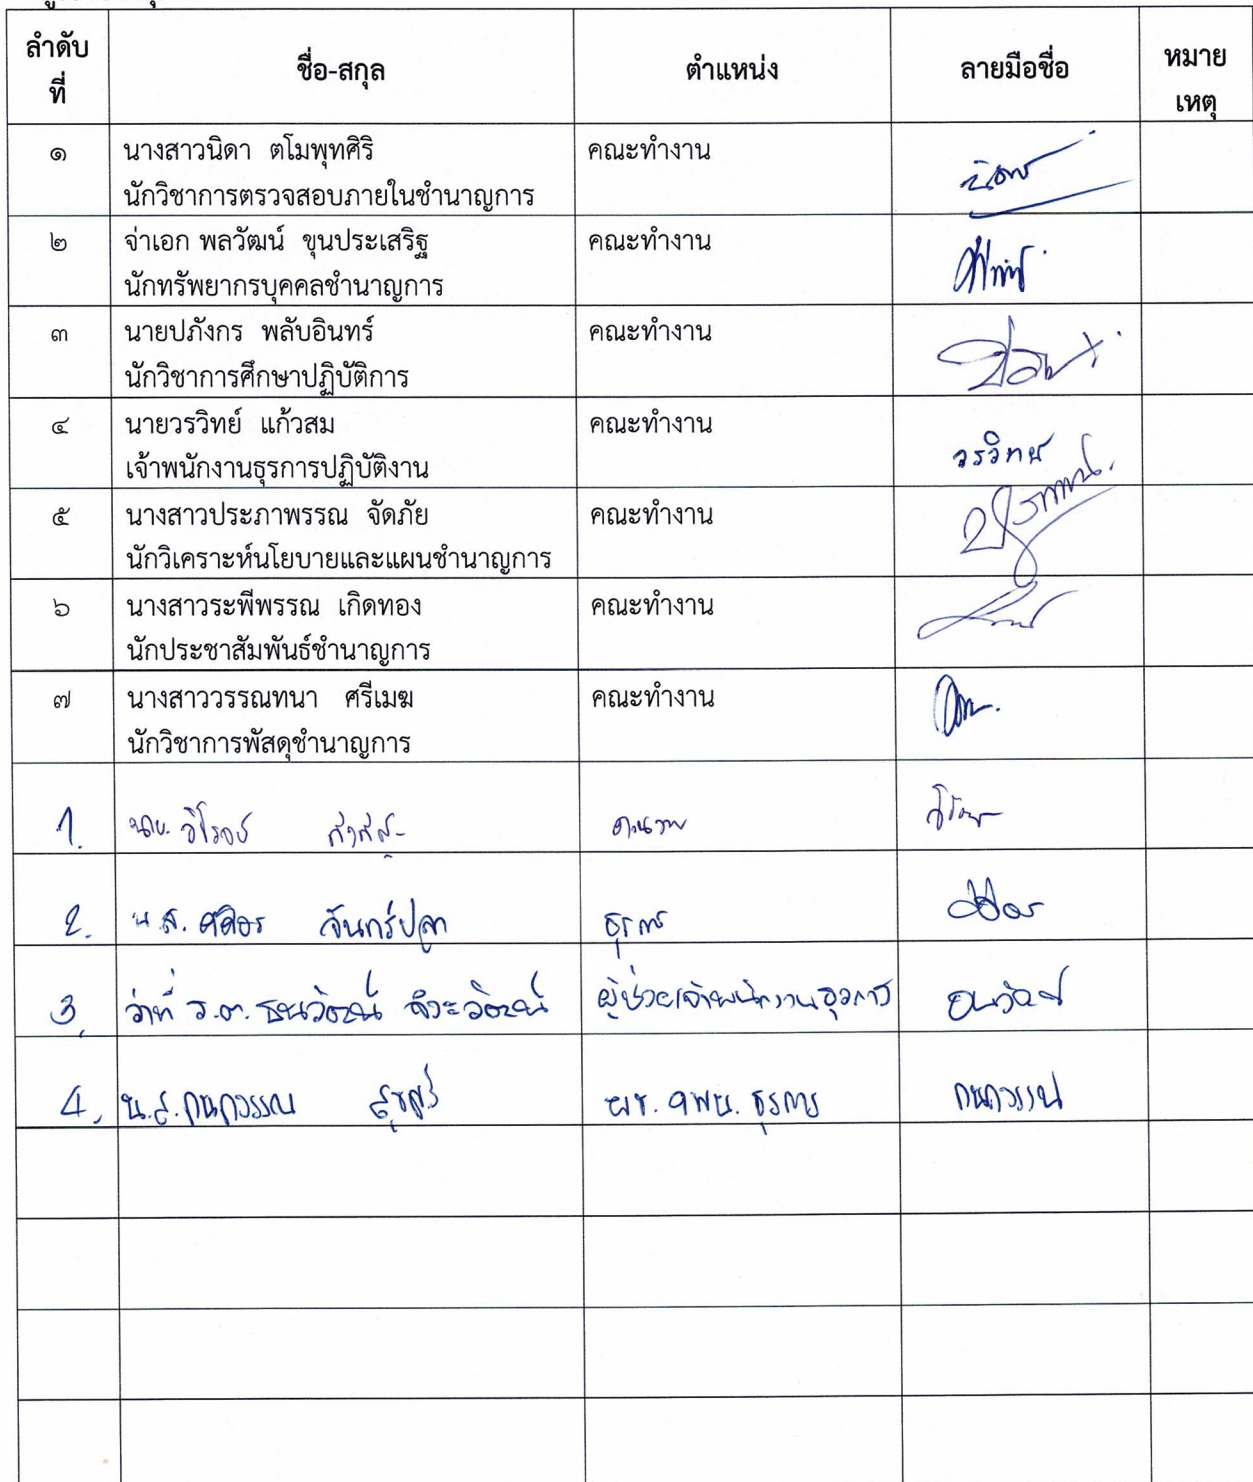 ลำดับ
ที่
ชื่อ-สกุล
ตำแหน่ง
ลายมือชื่อ
หมาย
เหตุ
๑
นางสาวนิดา ตโมพุทศิริ
นักวิชาการตรวจสอบภายในชำนาญการ
คณะทำงาน
๒
จ่าเอก พลวัฒน์ ขุนประเสริฐ
นักทรัพยากรบุคคลชำนาญการ
คณะทำงาน
๓
นายปภังกร พลับอินทร์
นักวิชาการศึกษาปฏิบัติการ
คณะทำงาน
๔
นายวรวิทย์ แก้วสม
เจ้าพนักงานธุรการปฏิบัติงาน
คณะทำงาน
วรวิทย์
๕
นางสาวประภาพรรณ จัดภัย
นักวิเคราะห์นโยบายและแผนชำนาญการ
คณะทำงาน
๖
นางสาวระพีพรรณ เกิดทอง
นักประชาสัมพันธ์ชำนาญการ
คณะทำงาน
๗
นางสาววรรณทนา ศรีเมฆ
นักวิชาการพัสดุชำนาญการ
คณะทำงาน
1.
นาย วิโรจน์
2.
น.ส. ศศิอร จันทร์ปลา
ธุรการ
3.
ว่าที่ ร.ต. ธนวัฒน์ จิระวัฒน์
ผู้ช่วยเจ้าพนักงานธุรการ
ธนวัฒน์
4.
น.ส. กนกวรรณ
ผช. จพน. ธุรการ
กนกวรรณ